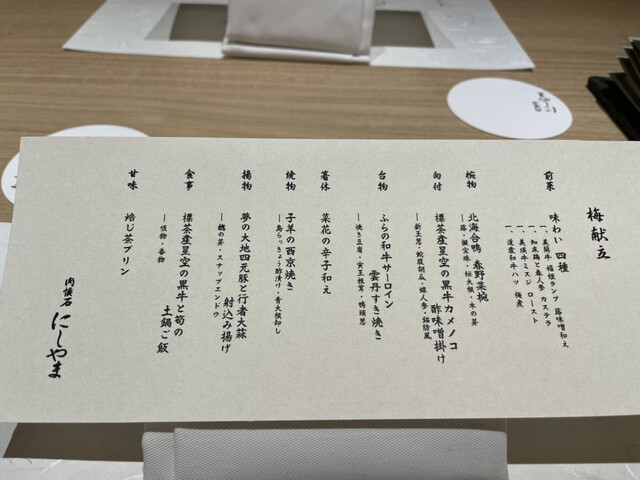 梅献立
前菜
味わい 四種
一、美蘭牛 福姫ランプ 蕗味噌和え
一、知床鶏と春人参 カステラ
一、美瑛牛ミスジ ロースト
一、道産和牛ハツ 梅煮
椀物
北海合鴨 春野菜椀
―蕗・擬宝珠・桜大根・木の芽
向付
標茶産星空の黒牛カメノコ
酢味噌掛け
―新玉葱・蛇腹胡瓜・蝶人参・鎧防風
台物
ふらの和牛サーロイン
雲丹すき焼き
―焼き豆腐・寅王椎茸・鴨頭葱
箸休
菜花の辛子和え
焼物
子羊の西京焼き
―島らっきょう酢漬け・青大根卸し
揚物
夢の大地四元豚と行者大蒜
射込み揚げ
―楤の芽・スナップエンドウ
食事
標茶産星空の黒牛と筍の
土鍋ご飯
―吸物・香物
甘味
焙じ茶プリン
肉懐石
にしやま